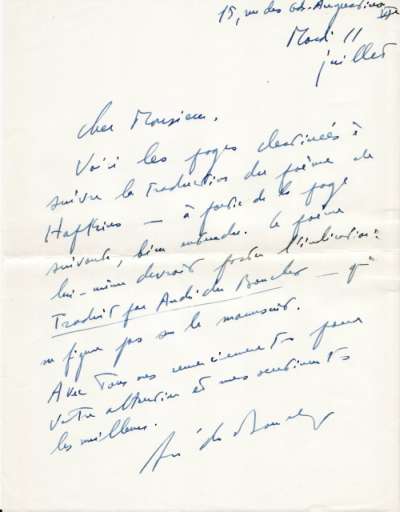 15, rue des Gds-Augustins VIe
Mardi 11
juillet
Cher Monsieur,
Voici les pages destinées à
suivre la traduction du poème de
Hopkins — à partir de la page
suivante, bien entendu. Le poème
lui-même devrait porter l'indication :
Traduit par André du Bouchet — qui
ne figure pas sur le manuscrit.
Avec tous mes remerciements pour
votre attention et mes sentiments
les meilleurs.
André du Bouchet